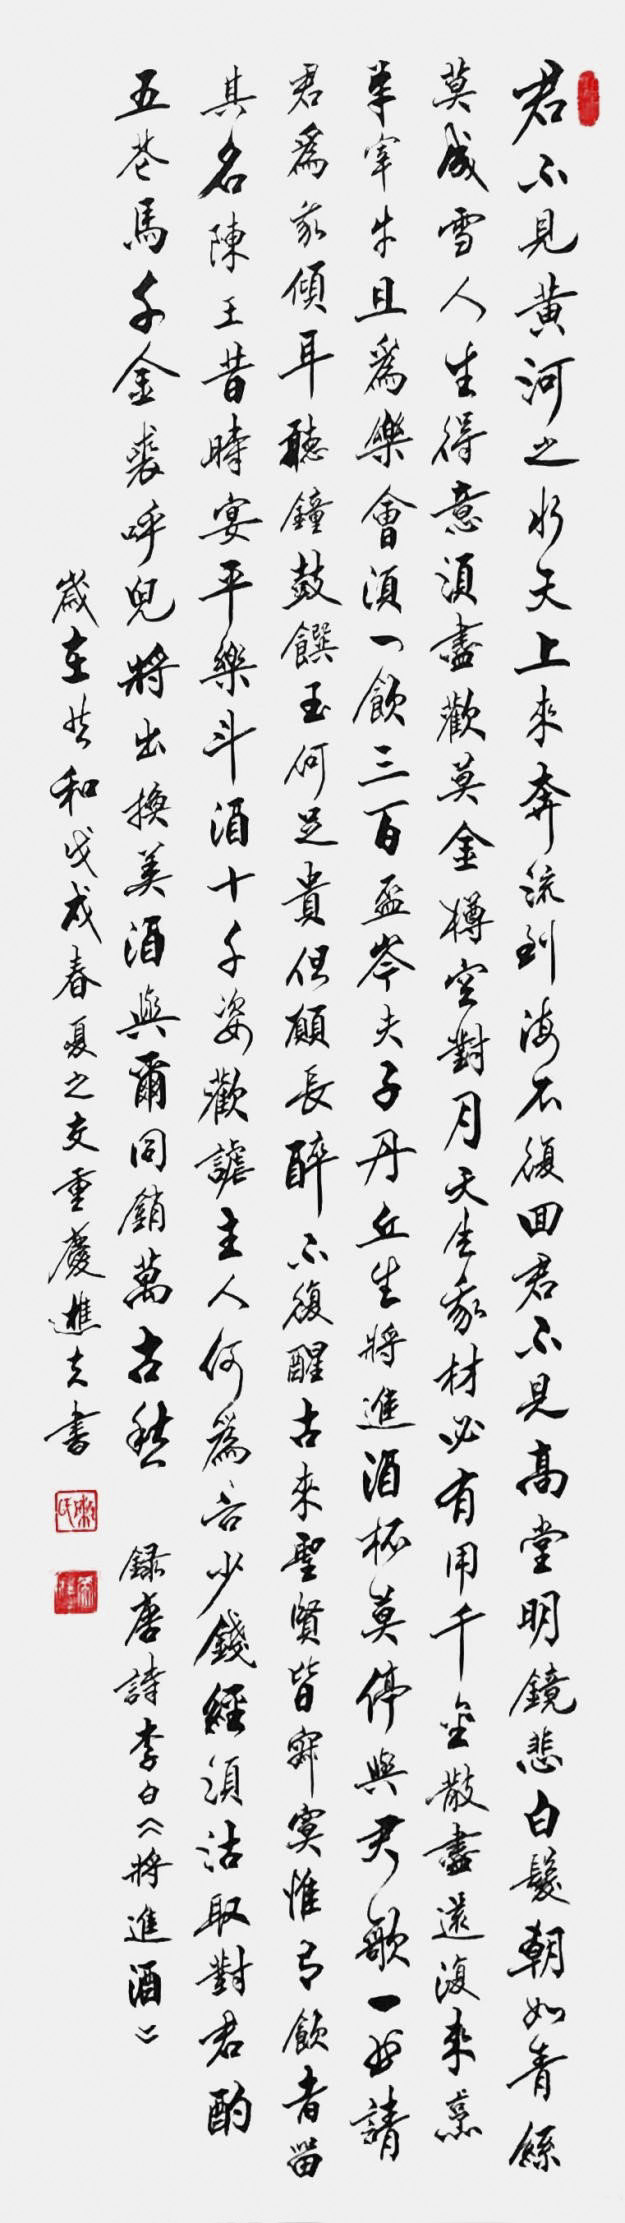 君不見黃河之水天上來奔流到海不復回君不見高堂明鏡悲白髮朝如青絲
莫成雪人生得意須盡歡莫金樽空對月天生我材必有用千金散盡還復來烹
羊宰牛且爲樂會須一飲三百盃岑夫子丹丘生將進酒杯莫停與君歌一曲請
君爲我傾耳聽鐘鼓饌玉何足貴但願長醉不復醒古來聖賢皆寂寞惟有飲者留
其名陳王昔時宴平樂斗酒十千姿歡謔主人何爲言少錢經須沽取對君酌
五花馬千金裘呼兒將出換美酒與爾同銷萬古愁 録唐詩李白《將進酒》
歲在共和戊戌春夏之交重慶樵夫書